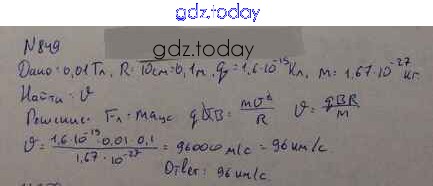 gdz.today
N849
gdz.today
Дано: 0,01 Тл, R: 10см=0,1м, q=1,6·10⁻¹⁹Кл, m: 1,67·10⁻²⁷кг.
Найти: υ
Решение: Fл = maцс qυB = mυ²/R υ = qBR/m
υ = 1,6·10⁻¹⁹·0,01·0,1/1,67·10⁻²⁷ = 96000 м/с = 96 км/с.
Ответ: 96 км/с.